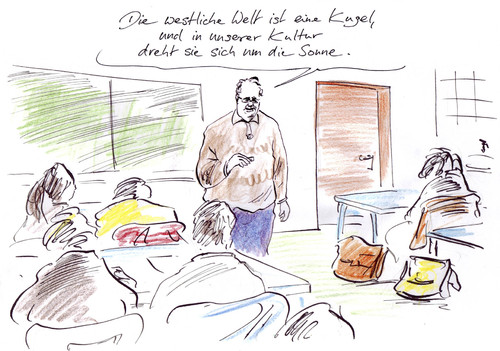 Die westliche Welt ist eine Kugel,
und in unserer Kultur
dreht sie sich um die Sonne.